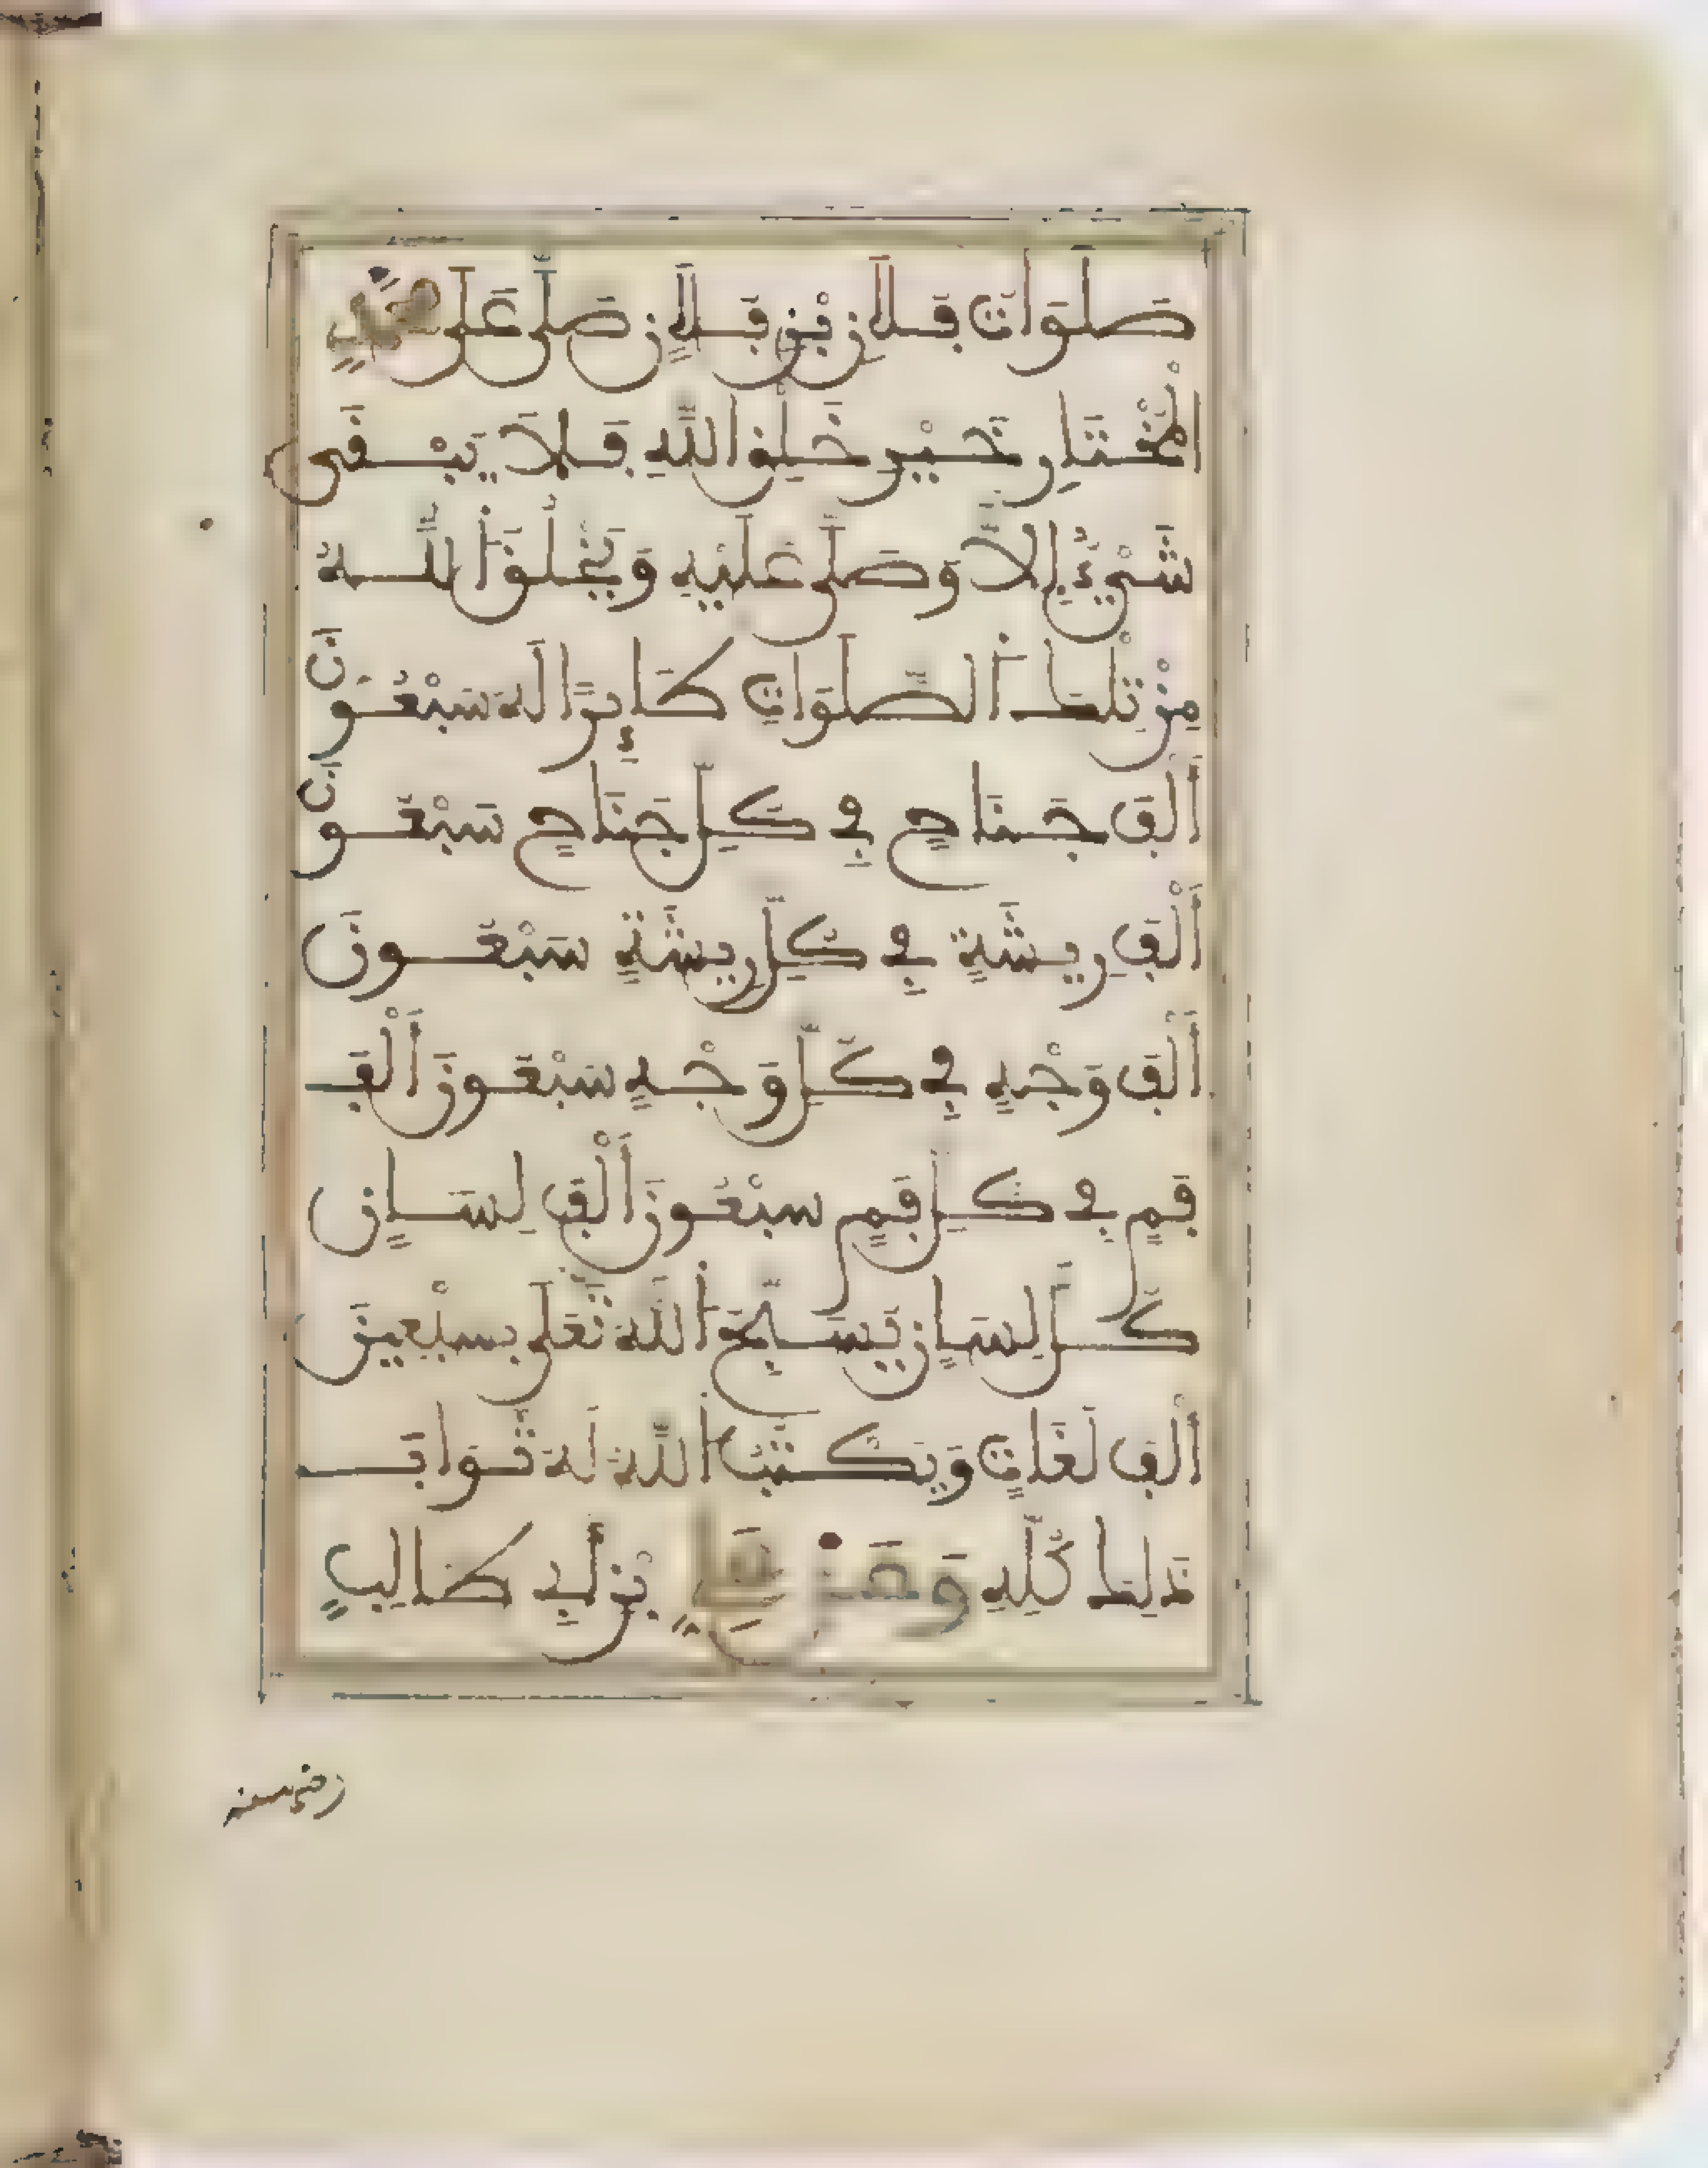 صَلَوَاتُ فُلَانِ بْنِ فُلَانٍ صَلَّى عَلَى مُحَمَّدٍ
الْمُخْتَارِ خَيْرِ خَلْقِ اللَّهِ فَلَا يَبْقَى
شَيْءٌ إِلَّا وَصَلَّى عَلَيْهِ وَيَخْلُقُ اللَّهُ
مِنْ تِلْكَ الصَّلَوَاتِ طَائِرًا لَهُ سَبْعُونَ
أَلْفَ جَنَاحٍ فِي كُلِّ جَنَاحٍ سَبْعُونَ
أَلْفَ رِيشَةٍ فِي كُلِّ رِيشَةٍ سَبْعُونَ
أَلْفَ وَجْهٍ فِي كُلِّ وَجْهٍ سَبْعُونَ أَلْفَ
فَمٍ فِي كُلِّ فَمٍ سَبْعُونَ أَلْفَ لِسَانٍ
كُلُّ لِسَانٍ يُسَبِّحُ اللَّهَ تَعَلَى بِسَبْعِينَ
أَلْفَ لُغَاتٍ وَيَكْتُبُ اللَّهُ لَهُ ثَوَابَ
ذَلِكَ كُلِّهِ وَعَنْ عَلِيِّ بْنِ أَبِي طَالِبٍ
رضي